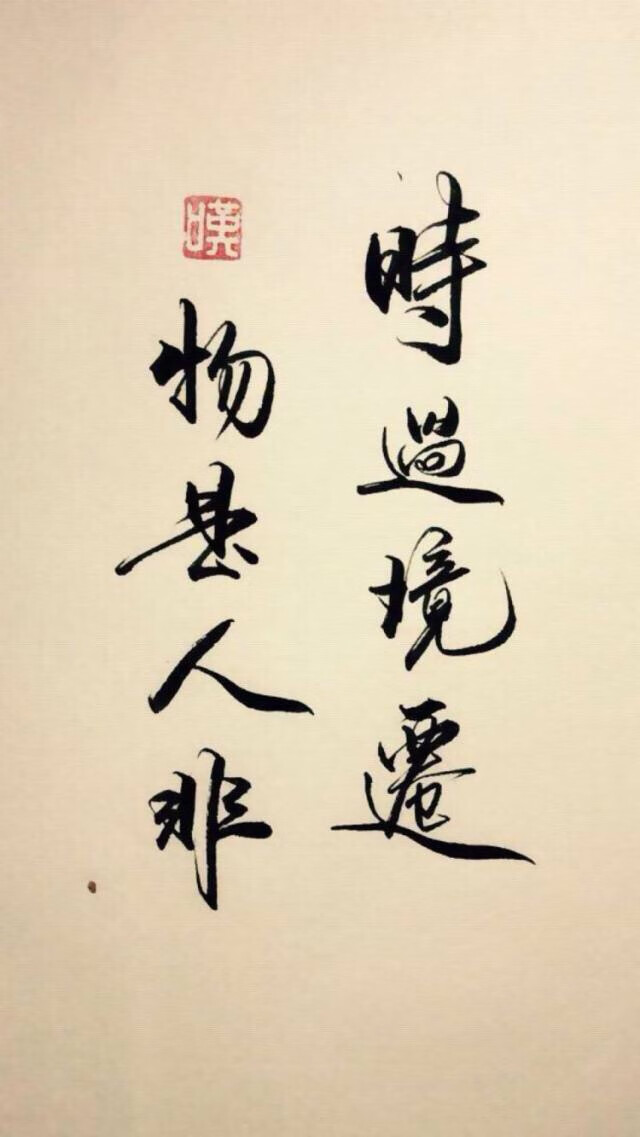 時過境遷
嘆
物是人非